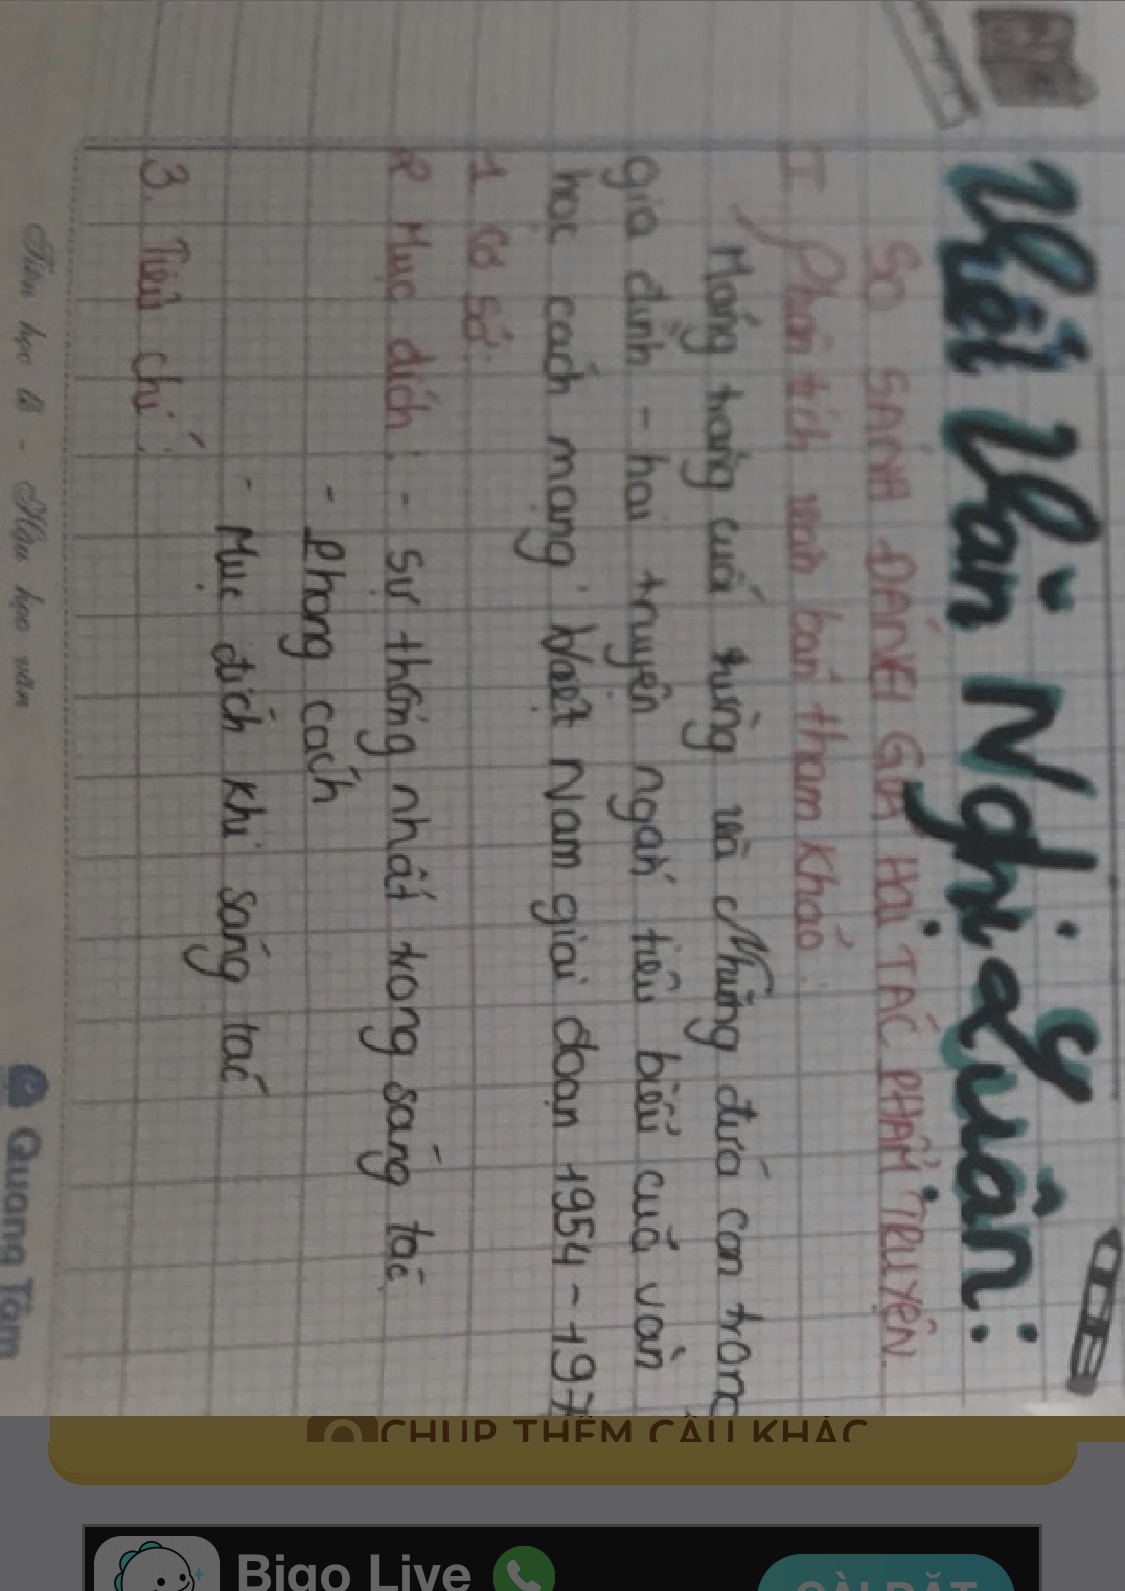 Viết Văn Nghị Luận:
SO SÁNH ĐÁNH GIÁ HAI TÁC PHẨM TRUYỆN.
I Phân tích văn bản tham khảo.
Mảnh trăng cuối rừng và Những đứa con trong
gia đình - hai truyện ngắn tiêu biểu của văn
học cách mạng Việt Nam giai đoạn 1954 - 197
1 Cơ sở.
2 Mục đích: - Sự thống nhất trong sáng tác
- Phong cách
- Mục đích khi sáng tác
3. Tiêu chí:
Tiên học lễ - Hậu học văn
Quang Tâm
CHỤP THÊM CÂU KHÁC
Bigo Live
CÀI ĐẶT